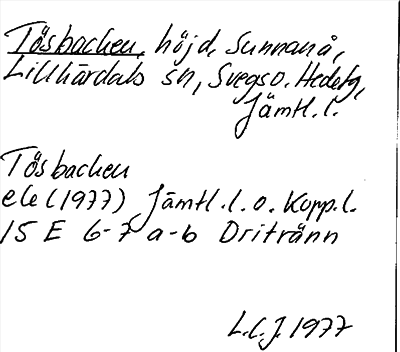 Tösbacken, höjd, Sunnanå,
Lillhärdals sn, Svegs o. Hedetg,
Jämtl.l.
Tösbacken
ek (1977) Jämtl.l.o. Kopp.l.
15 E 6-7 a-b Dritränn
L.C.J. 1977